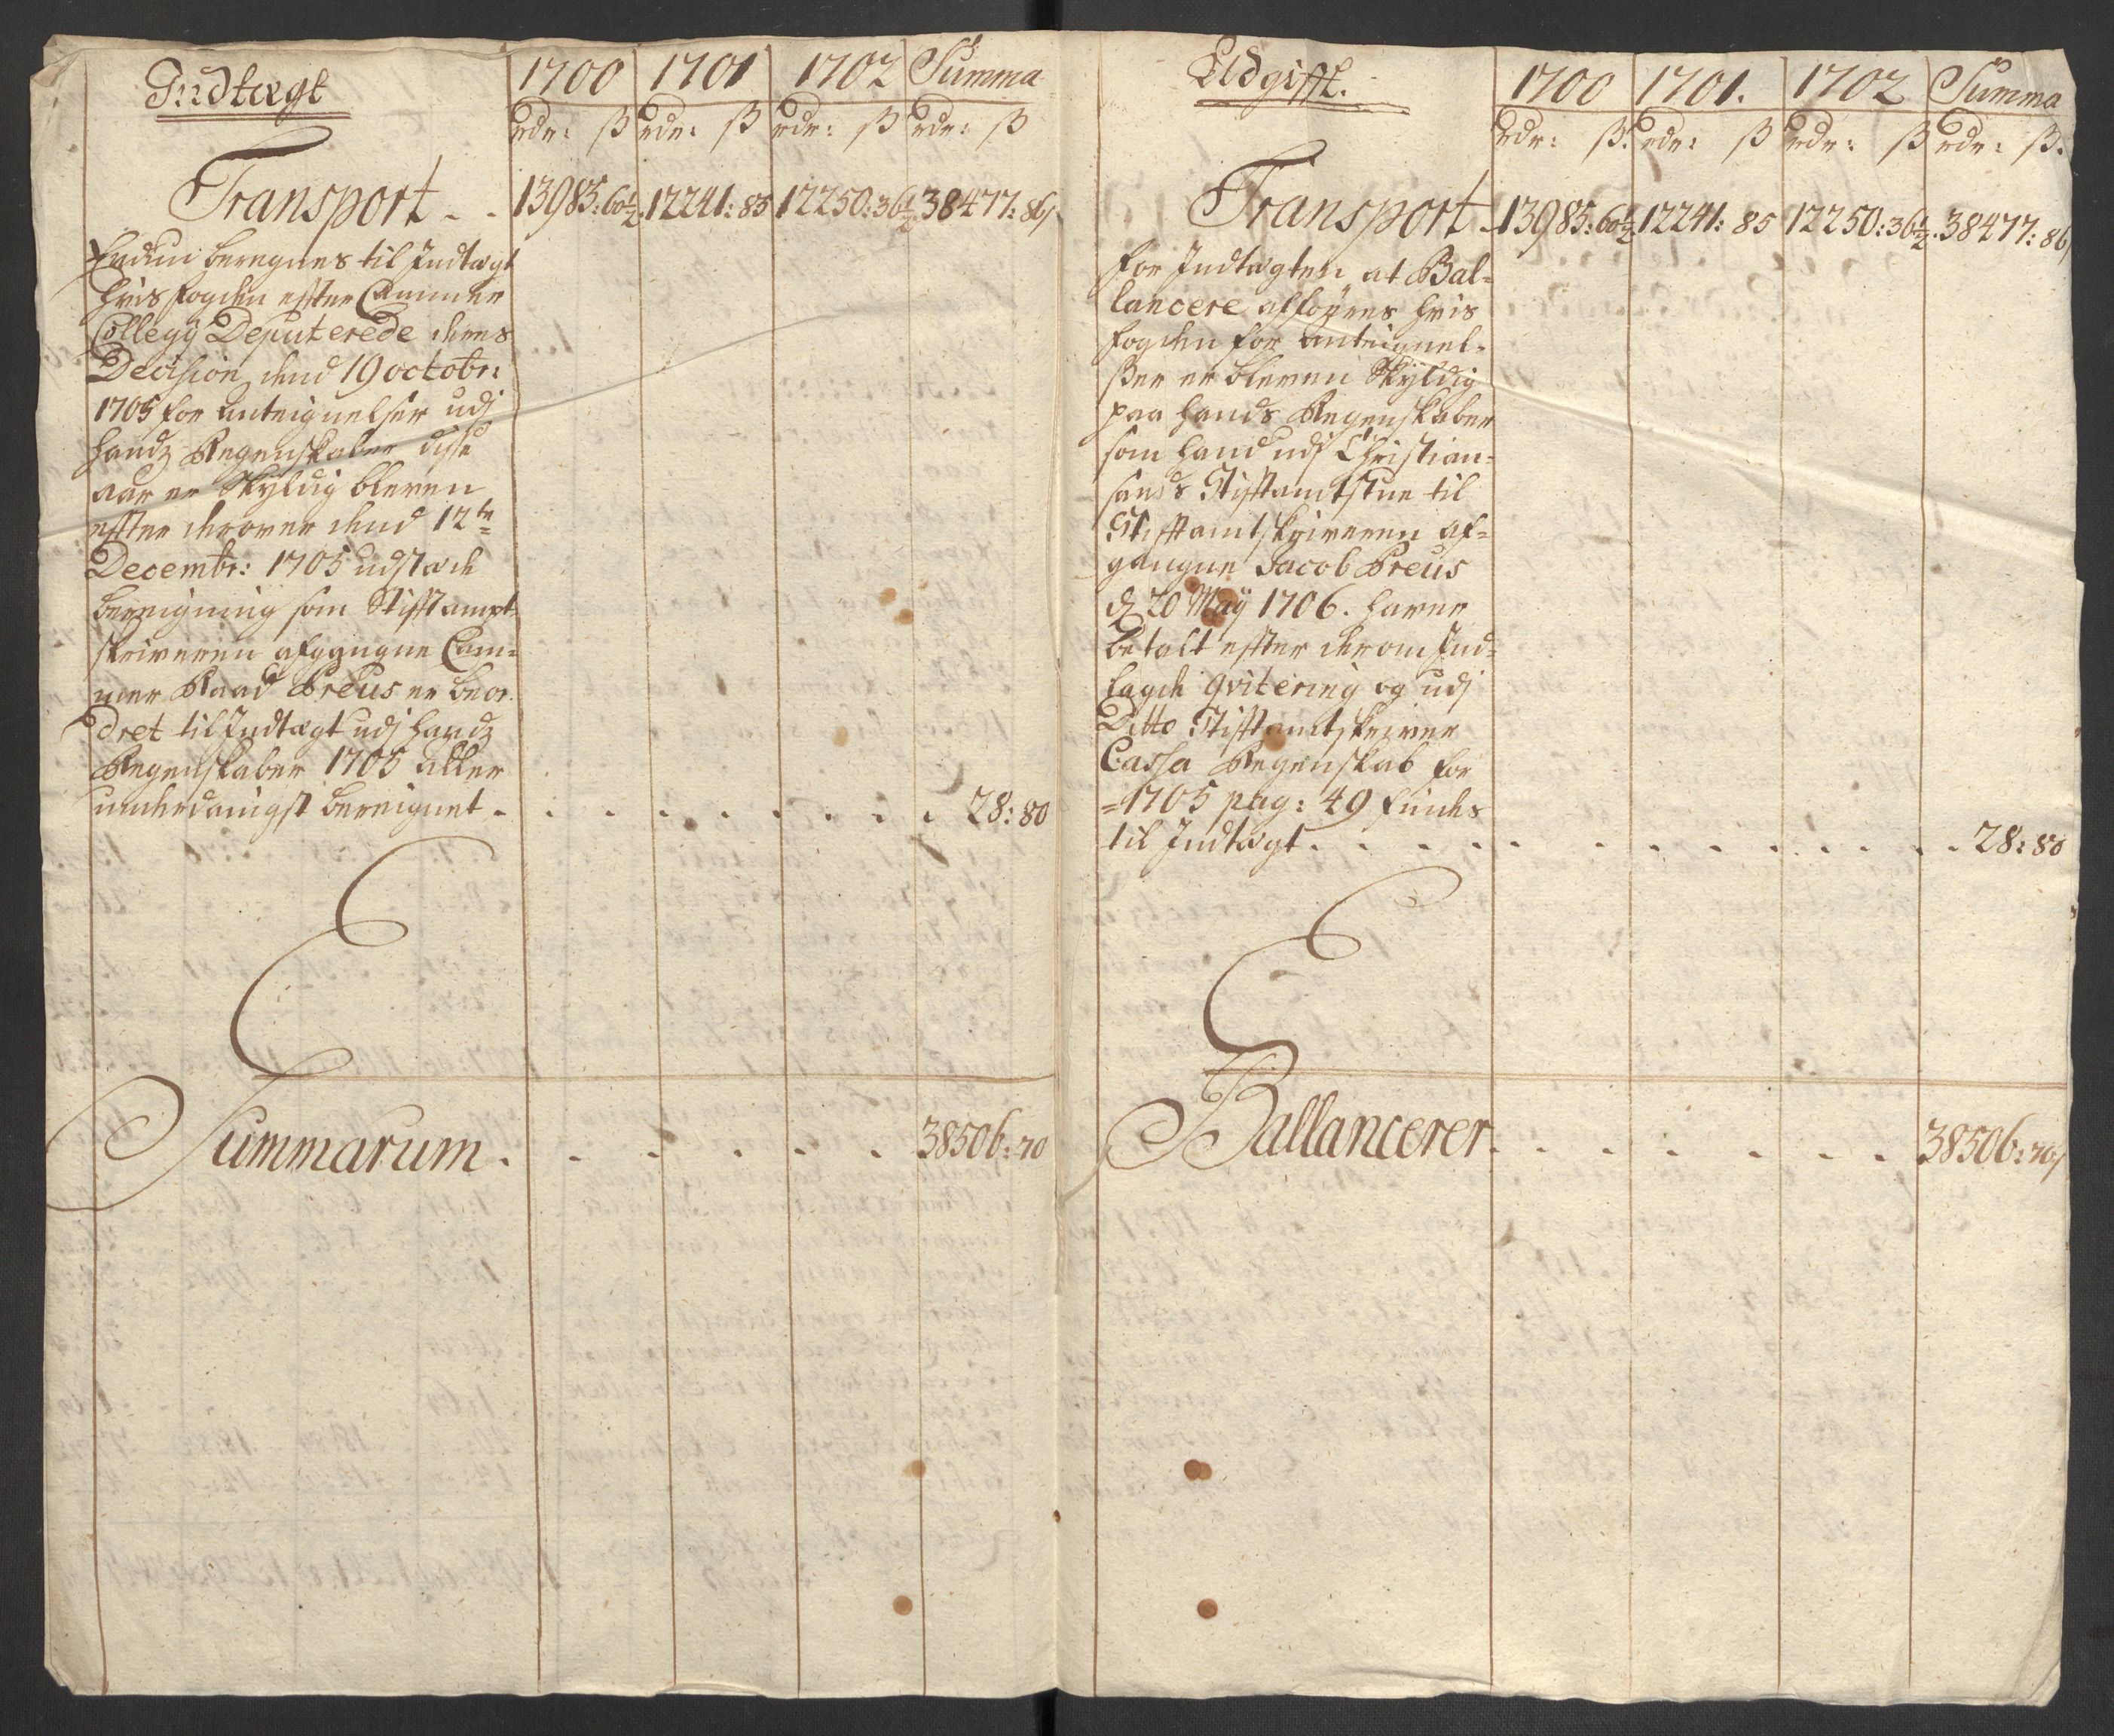 Indtægt
1700 1701 1702 Summa
rdr: ß rdr: ß rdr: ß rdr: ß
Transport - - 13985:60½. 12241:85 12250:36½. 38477:86
Endnu beregnes til Indtægt
hvis fogden effter Cammer
Collegÿ Deputerede deres
Decision dend 19 octobr:
1705 for anteignelser udj
handz Regenskaber disse
aar er skÿldig bleven
effter derover dend 12te
Decembr: 1705 udstæde
bereigning som Stifftampt
skriveren afgangne Cam=
mer Raad Preus er beor
dret til Indtægt udj handz
Regenskaber 1705 aller
underdanigst bereignet - . . . . . . . . 28:80
Summarum . . . . . . 38506:70
Udgifft.
1700 1701. 1702 Summa
rdr: ß. rdr: ß rdr: ß rdr: ß.
Transport - 13985:60½ 12241:85 12250:36½. 38477:86
For Indtægten at Bal=
lancere afføres hvis
fogden for anteignel=
ßer er bleven Skÿldig
paa hands Regenskaber
som hand udj Christian=
sands Stifftamtstue til
Stifftamtskriveren af=
gangne Jacob Preus
d 20 Maÿ 1706. haver
betalt effter derom Ind=
lagde qvitering og udj
Ditto Stifftamtskriver
Cassa Regenskab for
=1705 pag: 49 findes
til Indtægt . . . . . . . . . . . 28:80
Ballancerer . . . . . . . 38506:70